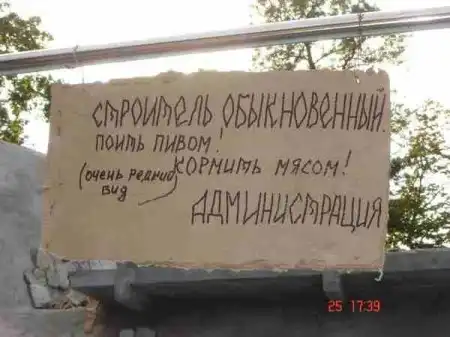 СТРОИТЕЛЬ ОБЫКНОВЕННЫЙ.
ПОИТЬ ПИВОМ!
КОРМИТЬ МЯСОМ!
(ОЧЕНЬ РЕДКИЙ
ВИД)
АДМИНИСТРАЦИЯ
25 17:39